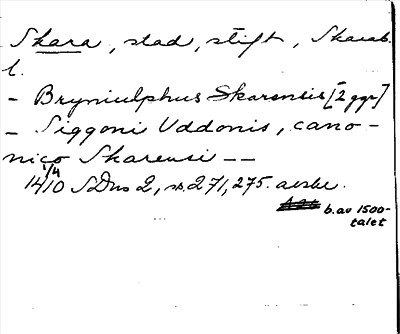 Skara, stad, stift, Skarab.
l.
- Bryniulphus Skarensis [2 ggr]
- Siggoni Uddonis, cano-
nico Skarensi --
1/4
1410 SDns 2, s. 271, 275. avskr.
A 26 b. av 1500-
talet